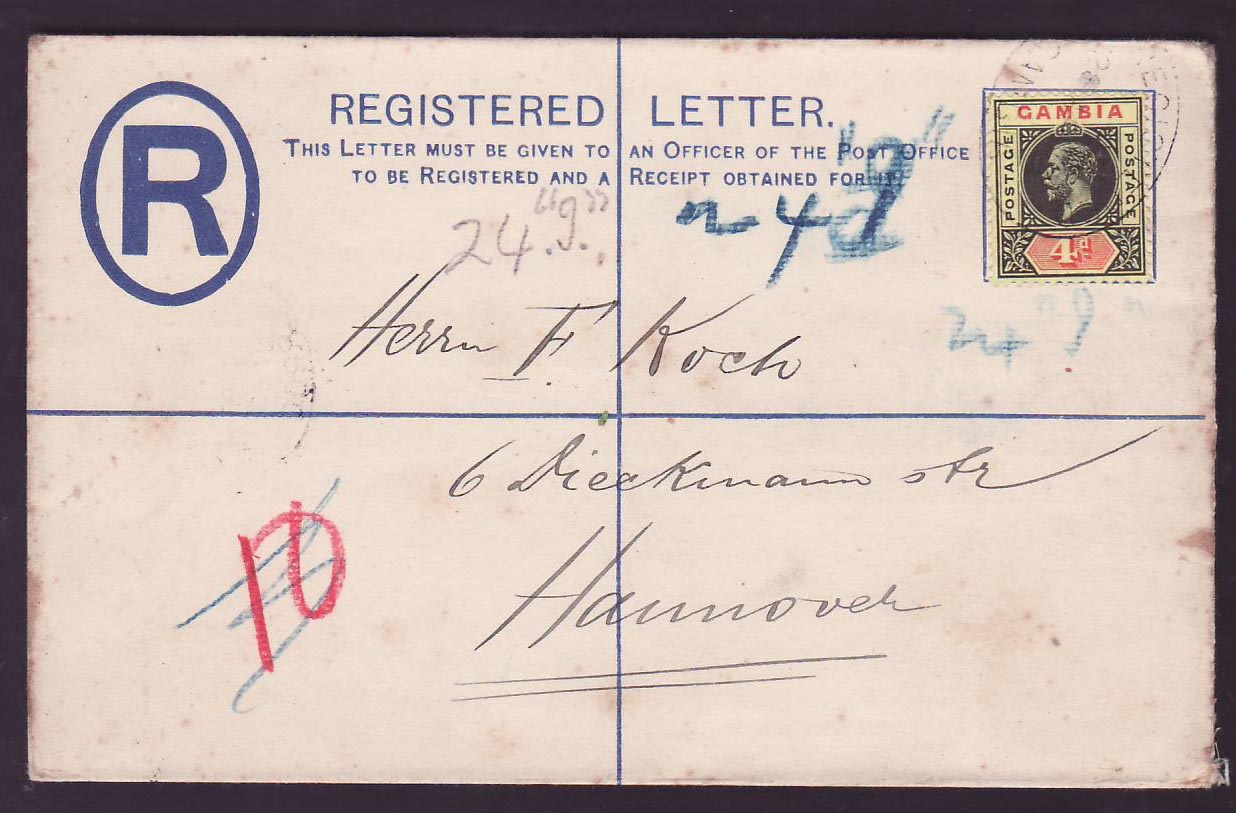 R
REGISTERED LETTER.
THIS LETTER MUST BE GIVEN TO AN OFFICER OF THE POST OFFICE
TO BE REGISTERED AND A RECEIPT OBTAINED FOR IT.
GAMBIA
POSTAGE
POSTAGE
4d
24 "g"
Herrn F. Koch
6 Dieckmann str
Hannover